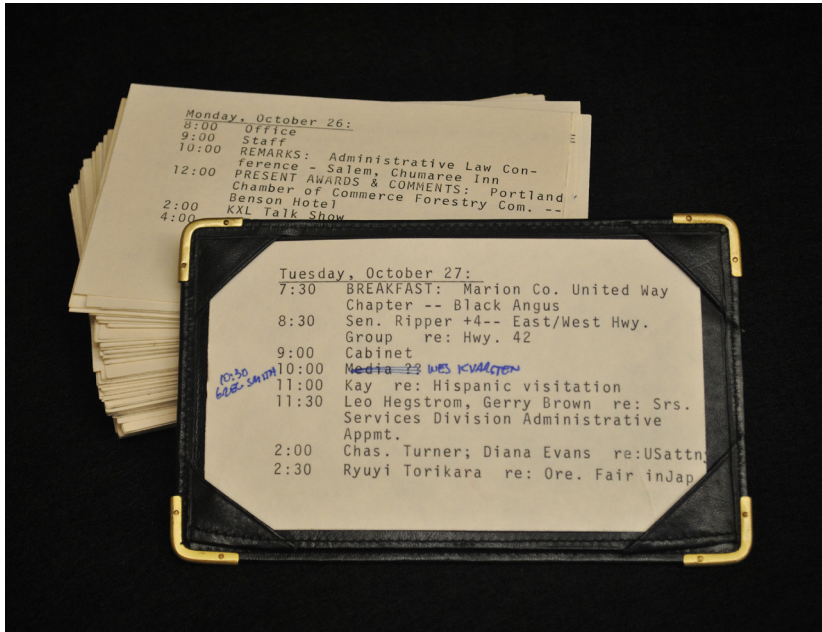 Monday, October 26:
8:00 Office
9:00 Staff
10:00 REMARKS: Administrative Law Con-
ference - Salem, Chumaree Inn
12:00 PRESENT AWARDS & COMMENTS: Portland
Chamber of Commerce Forestry Com. --
Benson Hotel
2:00 KXL Talk Show
4:00
Tuesday, October 27:
7:30 BREAKFAST: Marion Co. United Way
Chapter -- Black Angus
8:30 Sen. Ripper +4-- East/West Hwy.
Group re: Hwy. 42
9:00 Cabinet
10:00 Media ?? WES KVARSTEN
10:30
GREG SMITH
11:00 Kay re: Hispanic visitation
11:30 Leo Hegstrom, Gerry Brown re: Srs.
Services Division Administrative
Appmt.
2:00 Chas. Turner; Diana Evans re:USattny
2:30 Ryuyi Torikara re: Ore. Fair inJap